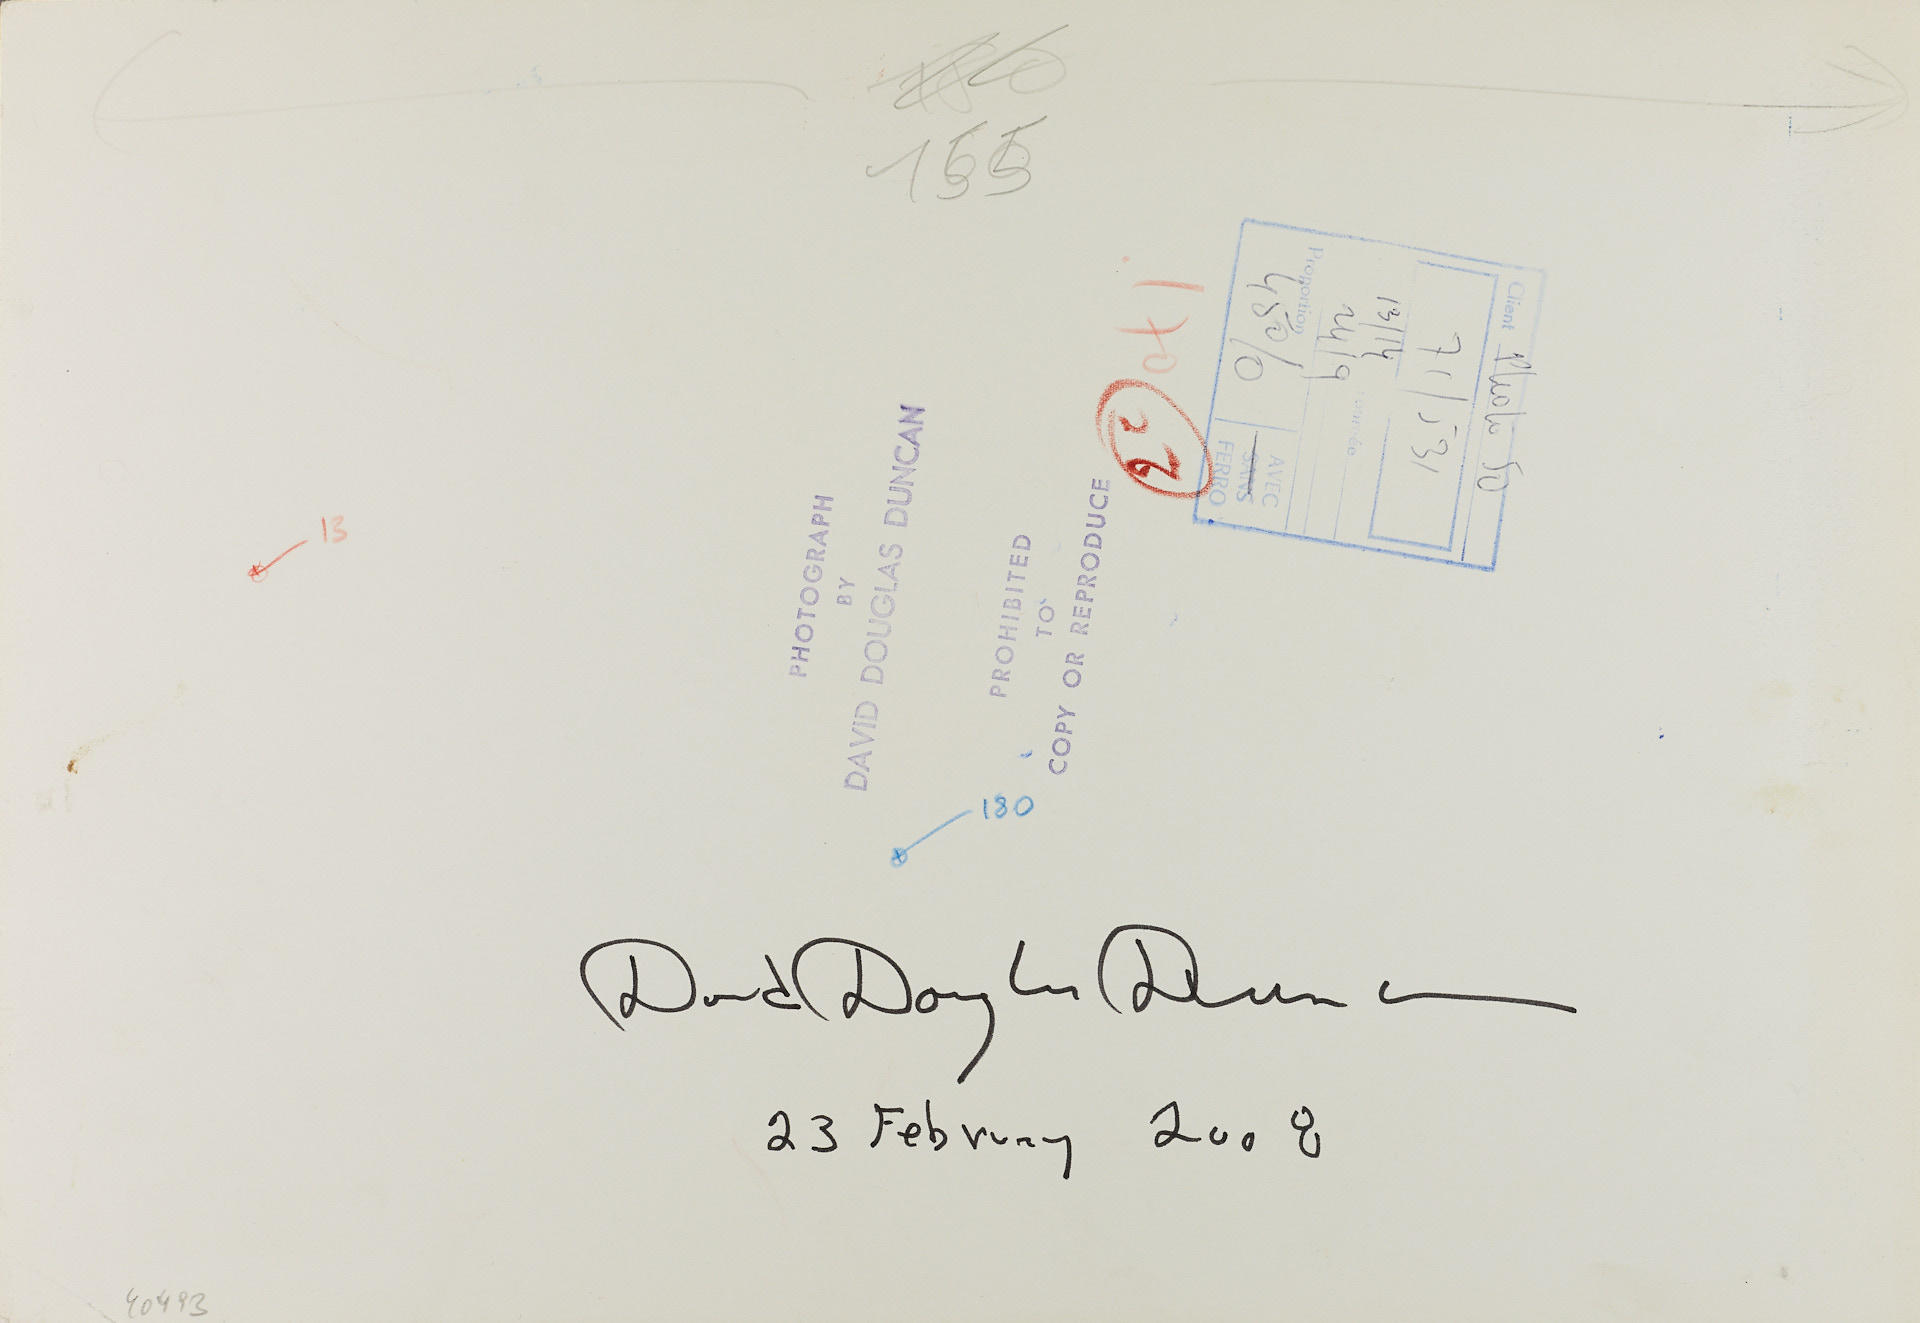 155
Client Photo 50
711/531
13/14
Proportion
45%
AVEC
SANS
FERRO
22
PHOTOGRAPH
BY
DAVID DOUGLAS DUNCAN
PROHIBITED
TO
COPY OR REPRODUCE
13
180
David Douglas Duncan
23 February 2008
40493